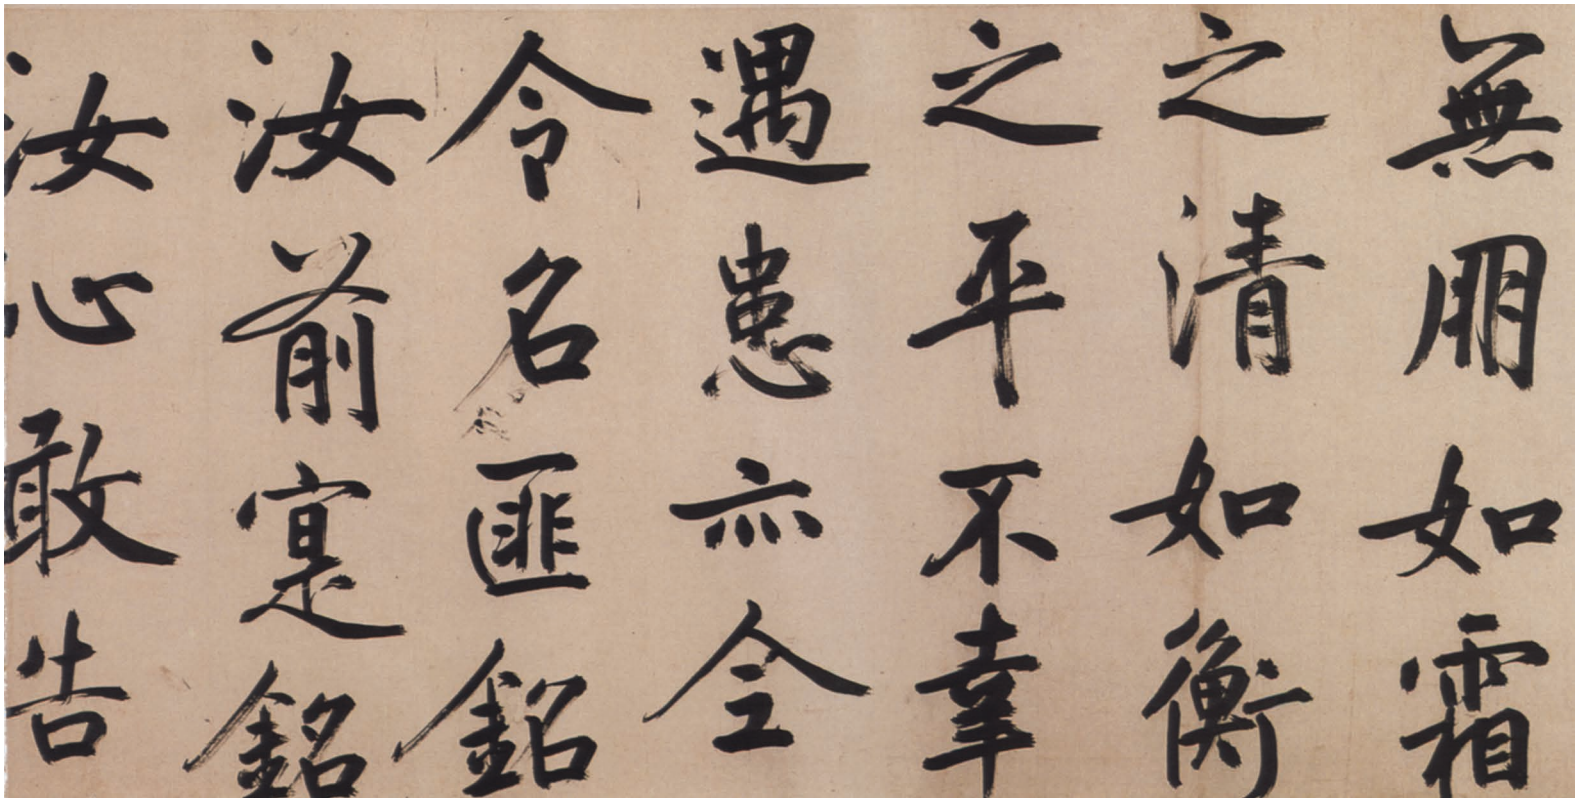 無朋如霜
之清如衡
之平不幸
遇患亦全
令名匪銘
汝前寔銘
汝心敢告